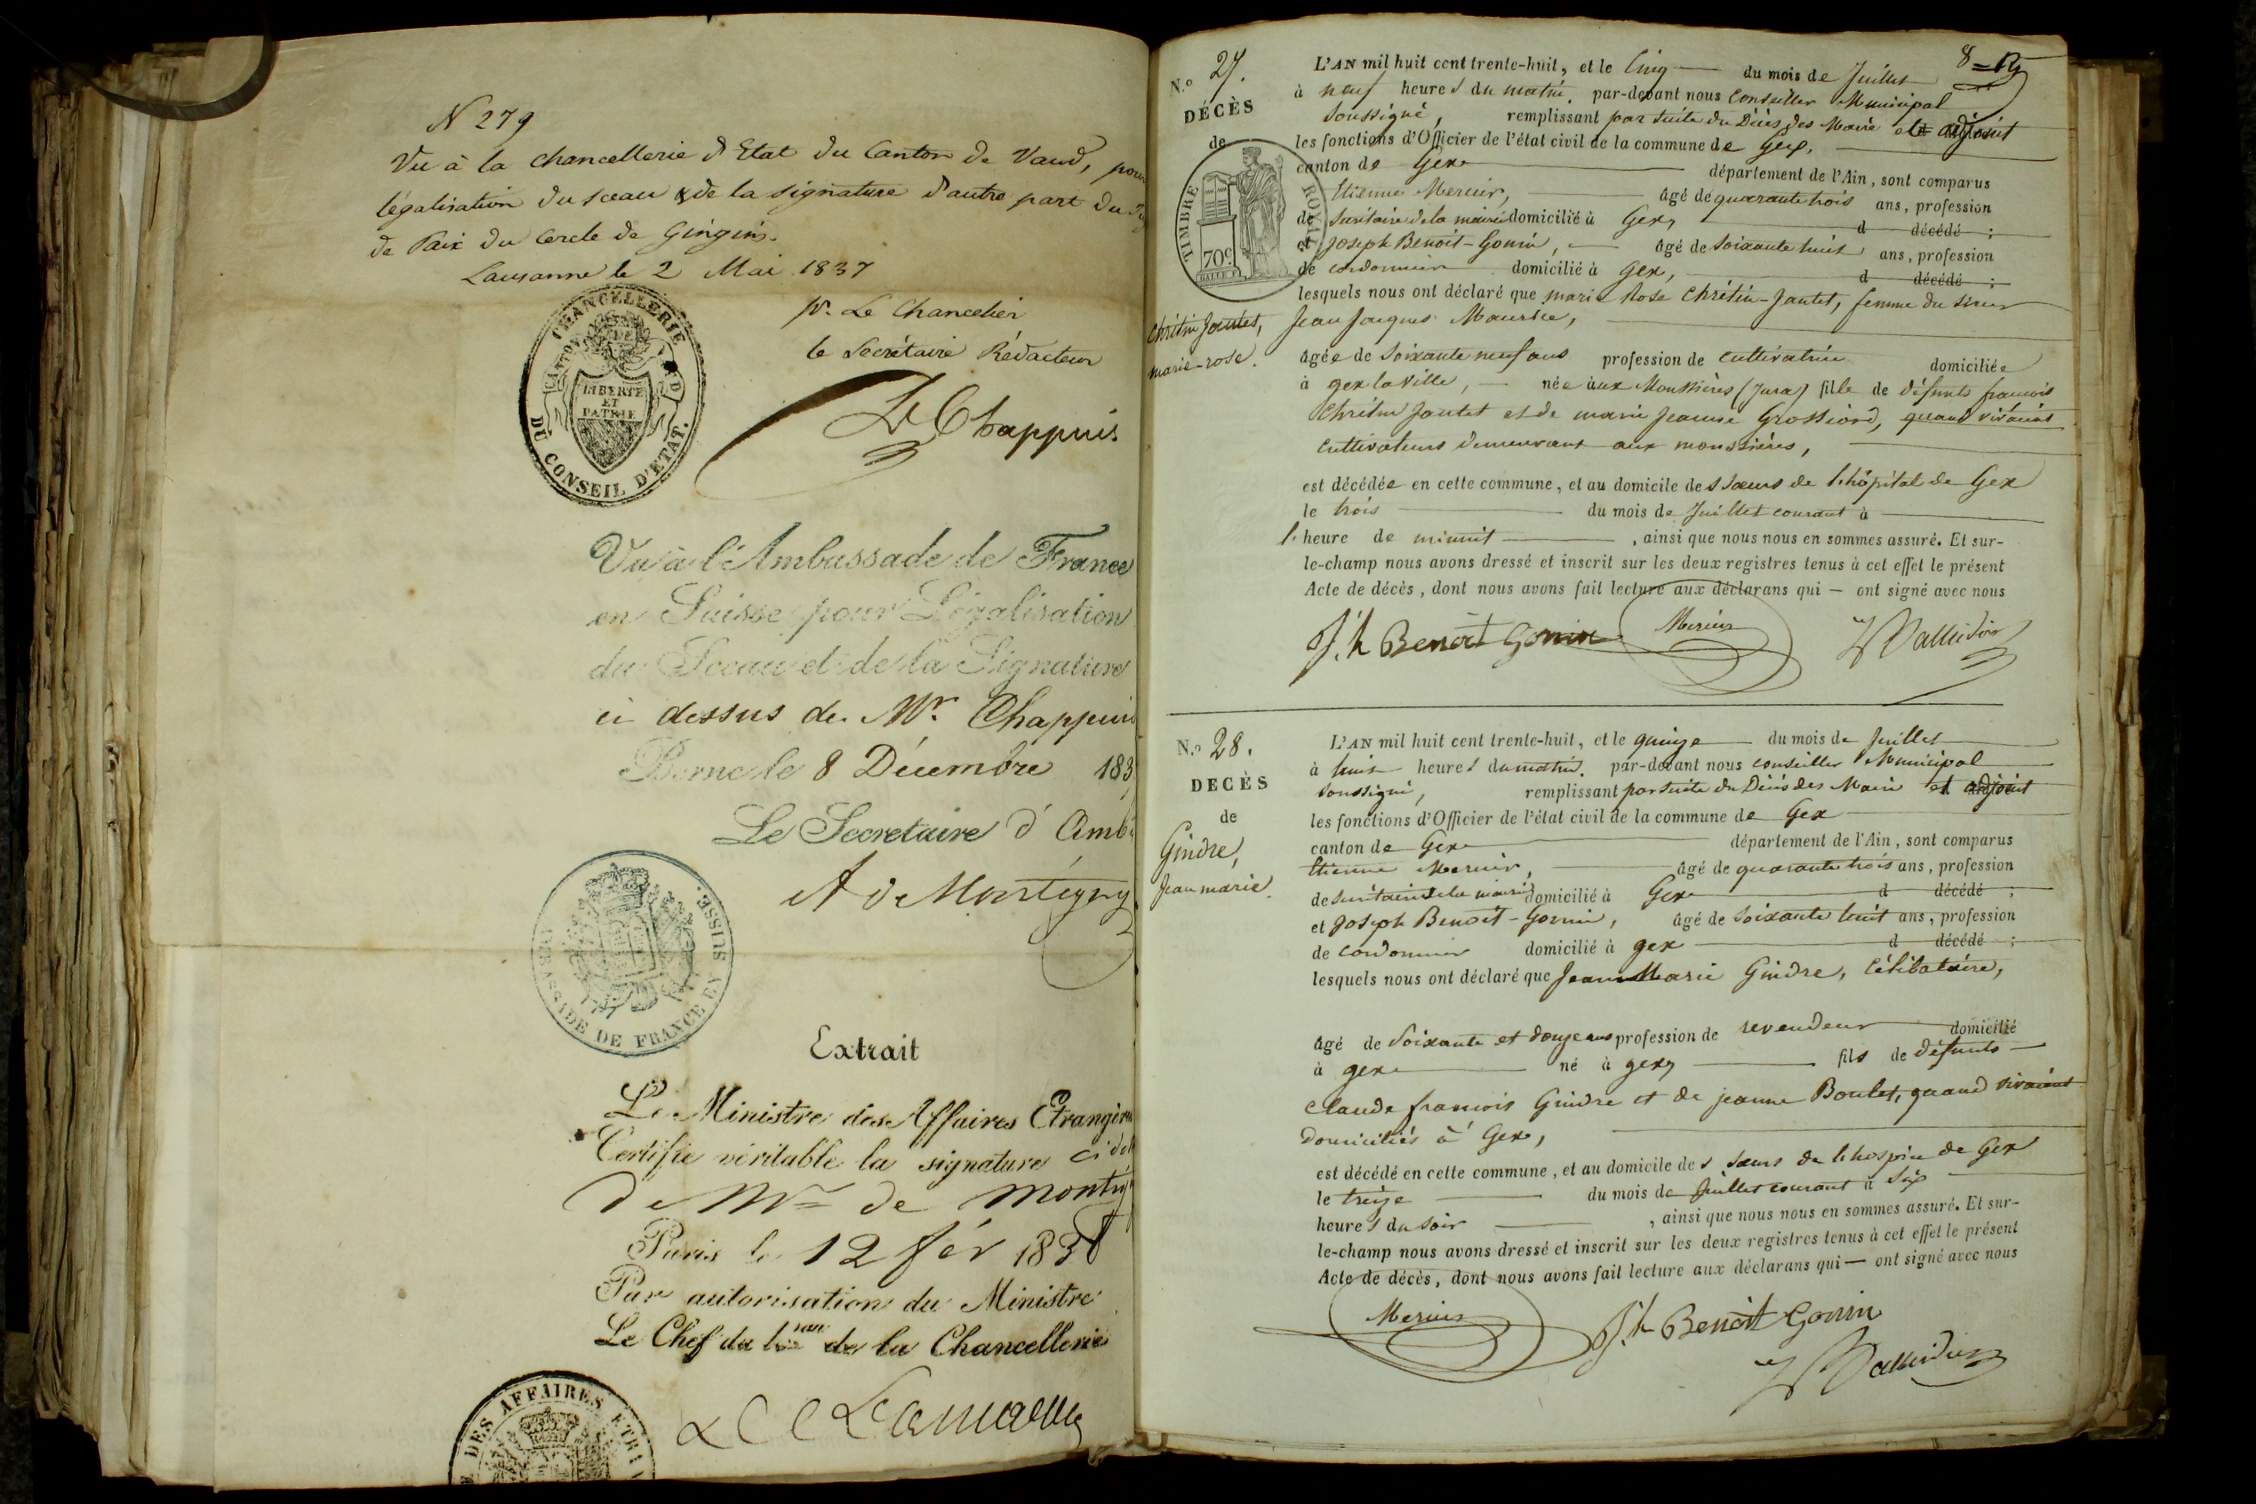 N 279
Vu à la chancellerie d'Etat du Canton de Vaud, pour
légalisation du sceau & de la signature d'autre part du
de Paix du Cercle de Gingins.
Lausanne le 2 Mai 1837
pr. Le Chancelier
le Secrétaire Rédacteur
Chappuis
CHANCELLERIE
DU CONSEIL D'ETAT.
CANTON
LIBERTÉ
ET
PATRIE
Vu à l'Ambassade de France
en Suisse pour Légalisation
du Sceau et de la Signature
ci dessus de Mr. Chappuis
Berne le 8 Décembre 183
Le Secretaire d'Amb
de Montigny
AMBASSADE DE FRANCE EN SUISSE.
Extrait
Le Ministre des Affaires Etrangères
Certifie véritable la signature ci
de Mr de Montig
Paris le 12 fév 1838
Par autorisation du Ministre
Le Chef du bau de la Chancellerie
DES AFFAIRES ETR
8
N.o 27.
DÉCÈS
de
TIMBRE ROYAL
70c
Chrétin Jantet,
marie-rose.
L'AN mil huit cent trente-huit, et le Cinq du mois de Juillet
à neuf heures du matin. par-devant nous Conseiller Municipal
soussigné, remplissant par suite du Décès des Maire et adjoint
les fonctions d'Officier de l'état civil de la commune de Gex,
canton de Gex département de l'Ain, sont comparus
Etienne Mercier, âgé de quarante trois ans, profession
de secrétaire de la mairie domicilié à Gex, d décédé ;
et Joseph Benoit-Gonin, âgé de soixante huit ans, profession
de cordonnier domicilié à Gex, d décédé ;
lesquels nous ont déclaré que marie Rose Chrétin-Jantet, femme du sieur
Jean Jacques Maurice,
âgée de soixante neuf ans profession de cultivatrice domiciliée
à gex la ville, née aux Moussières (Jura) fille de défunts françois
Chrétin Jantet et de marie Jeanne Grossiord, quand vivaient
cultivateurs demeurant aux moussières,
est décédée en cette commune, et au domicile des sœurs de l'hôpital de Gex
le trois du mois de Juillet courant à
l'heure de minuit , ainsi que nous nous en sommes assuré. Et sur-
le-champ nous avons dressé et inscrit sur les deux registres tenus à cet effet le présent
Acte de décès, dont nous avons fait lecture aux déclarans qui — ont signé avec nous
J.h Benoit Gonin Mercier
N.o 28.
DECÈS
de
Gindre,
Jean marie.
L'AN mil huit cent trente-huit, et le quinze du mois de Juillet
à huit heures du matin. par-devant nous conseiller Municipal
soussigné, remplissant par suite du Décès des Maire et adjoint
les fonctions d'Officier de l'état civil de la commune de Gex
canton de Gex département de l'Ain, sont comparus
Etienne Mercier, âgé de quarante trois ans, profession
de secrétaire de la mairie domicilié à Gex d décédé ;
et Joseph Benoit-Gonin, âgé de soixante huit ans, profession
de cordonnier domicilié à gex d décédé ;
lesquels nous ont déclaré que Jean Marie Gindre, célibataire,
âgé de soixante et douze ans profession de revendeur domicilié
à gex né à gex, fils de défunts
Claude françois Gindre et de jeanne Boulet, quand vivaient
domiciliés à Gex,
est décédé en cette commune, et au domicile des sœurs de l'hospice de Gex
le treize du mois de Juillet courant à six
heures du soir , ainsi que nous nous en sommes assuré. Et sur-
le-champ nous avons dressé et inscrit sur les deux registres tenus à cet effet le présent
Acte de décès, dont nous avons fait lecture aux déclarans qui — ont signé avec nous
Mercier J.h Benoit Gonin